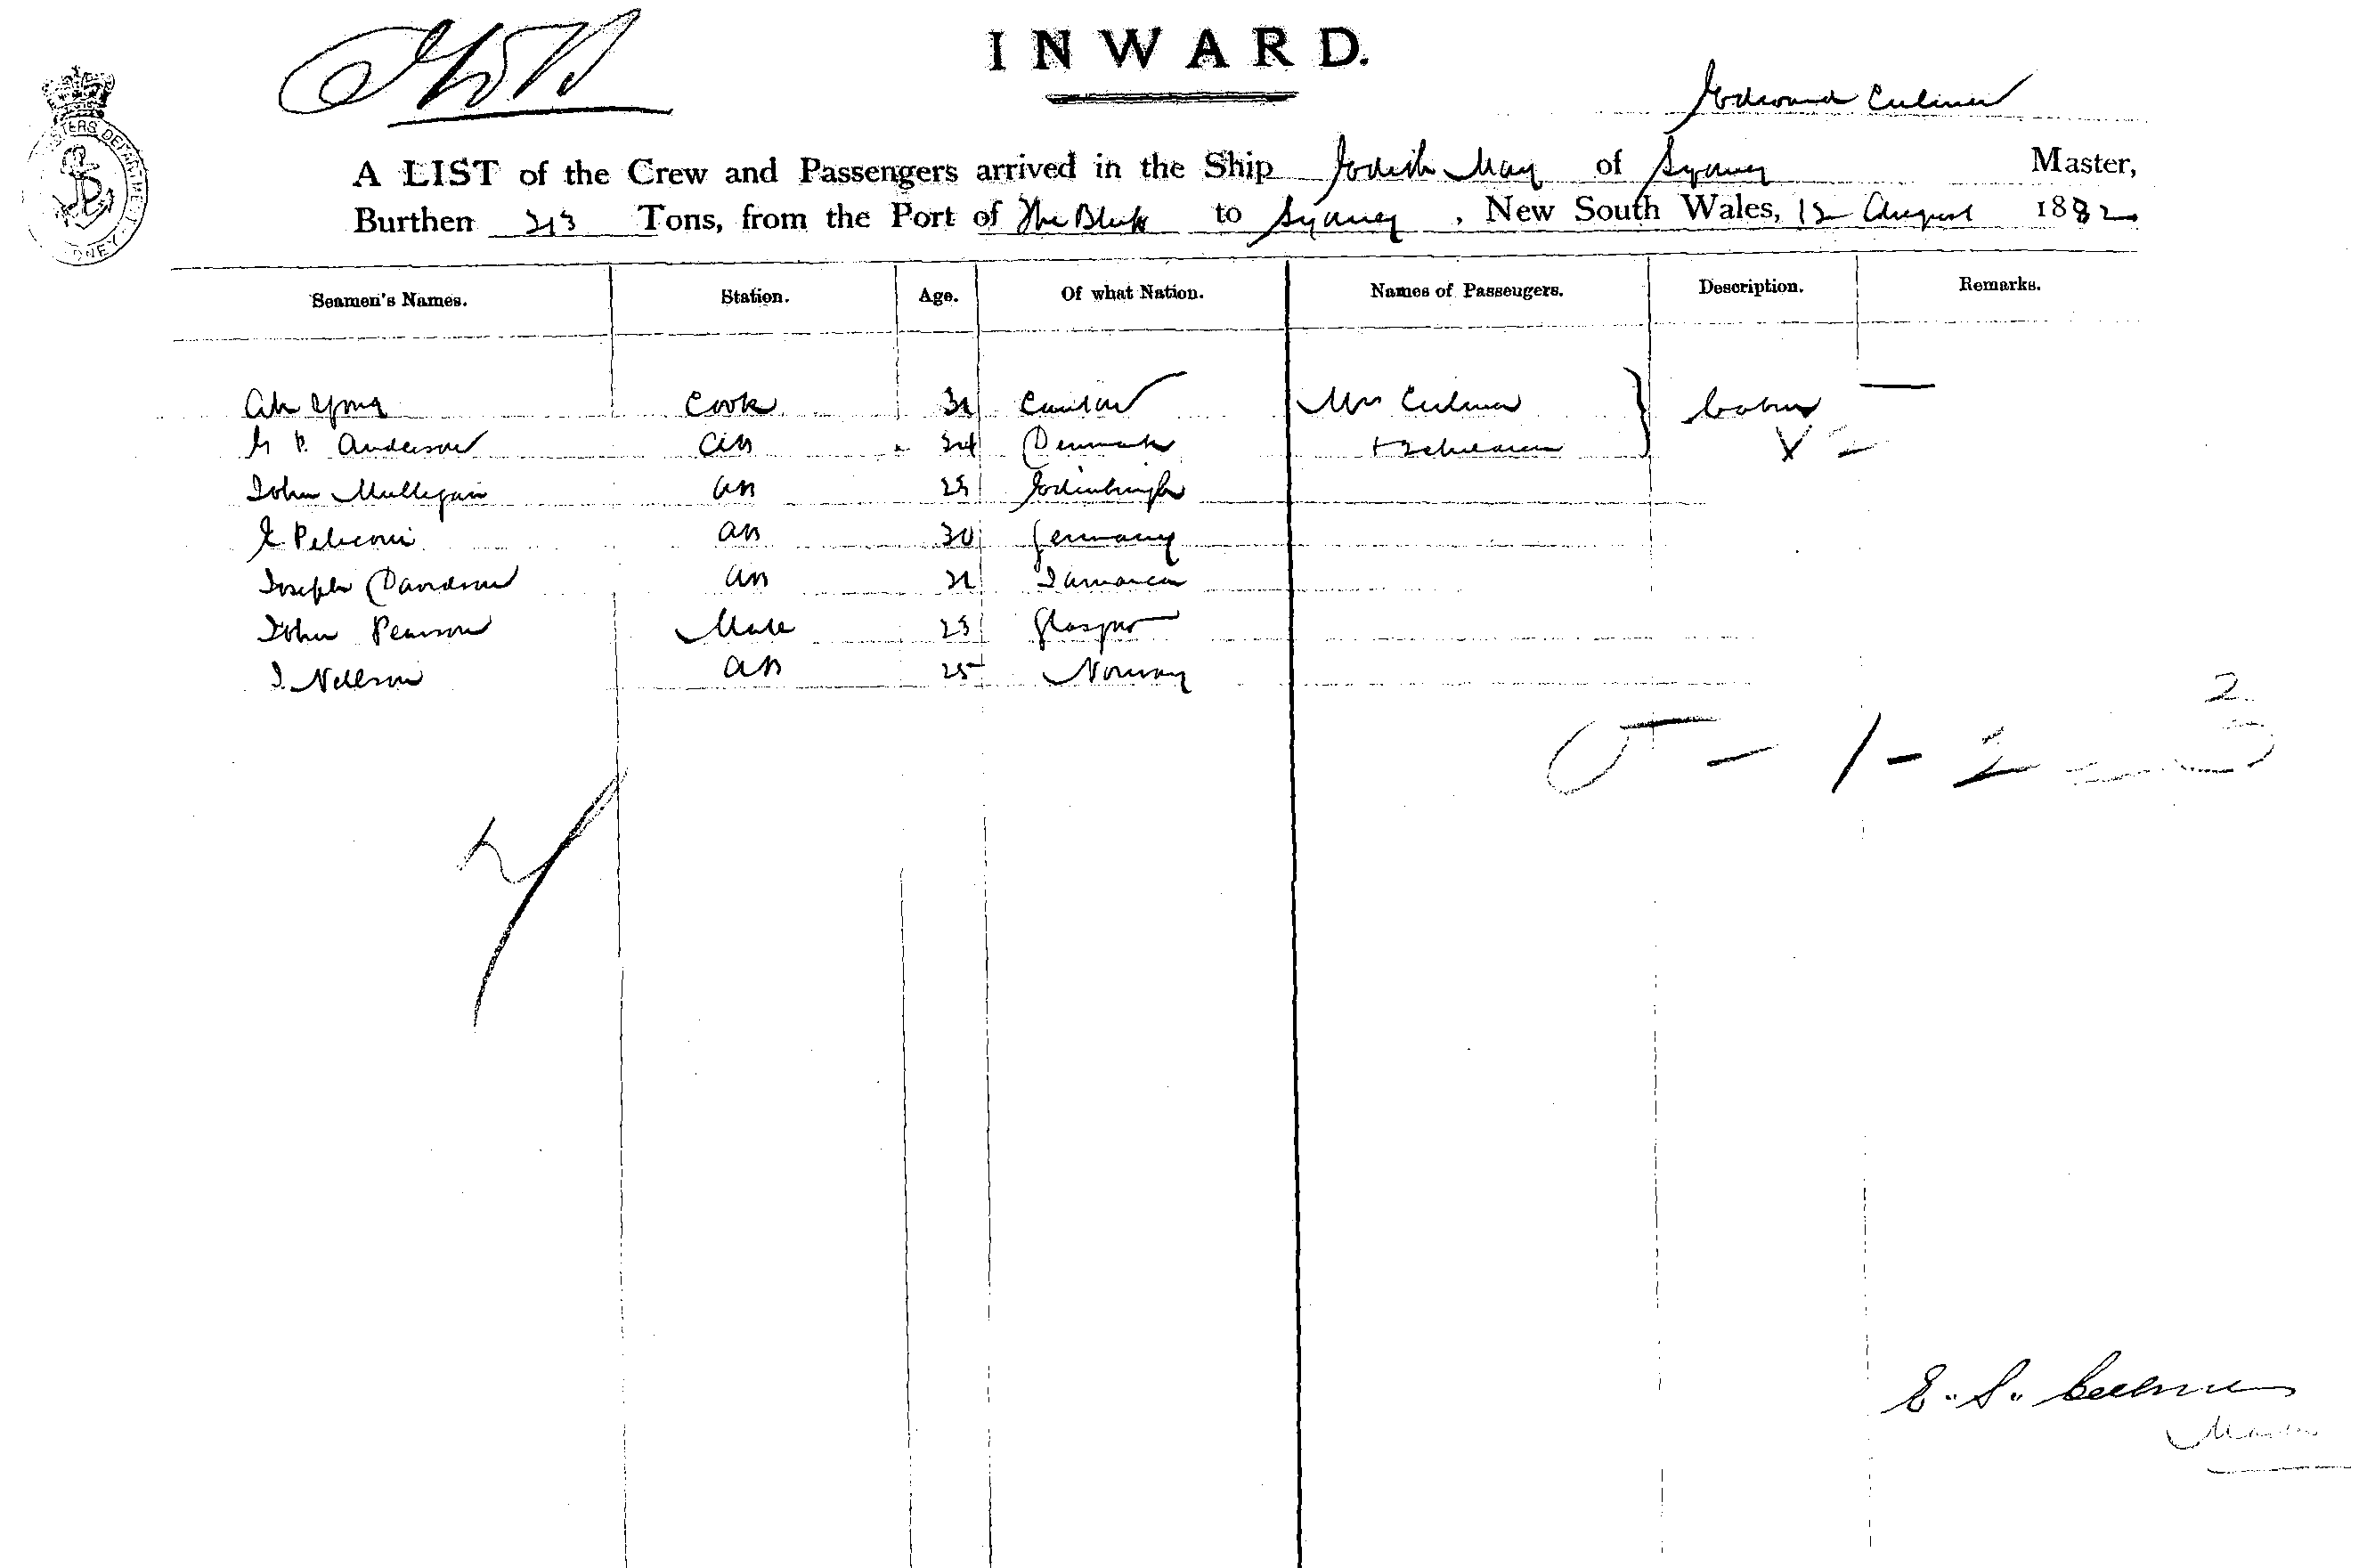 INWARD.
Edward Culmer
A LIST of the Crew and Passengers arrived in the Ship Edith May of Sydney Master,
Burthen 213 Tons, from the Port of The Bluff to Sydney, New South Wales, 12 August 1882
Seamen's Names. Station. Age. Of what Nation. Names of Passengers. Description. Remarks.
Ah Yong Cook Canton Mrs Culmer Cabin
P. Anderson AB 24 Denmark + 2 children
John Mulligan AB 25 Edinburgh
E Peliconi AB 30 Germany
Joseph Davidson AB 21 Jamaica
John Pearson Mate 25 Glasgow
J. Nellson AB 25 Norway
2
- 1 - 2
E. S. Culmer
Master